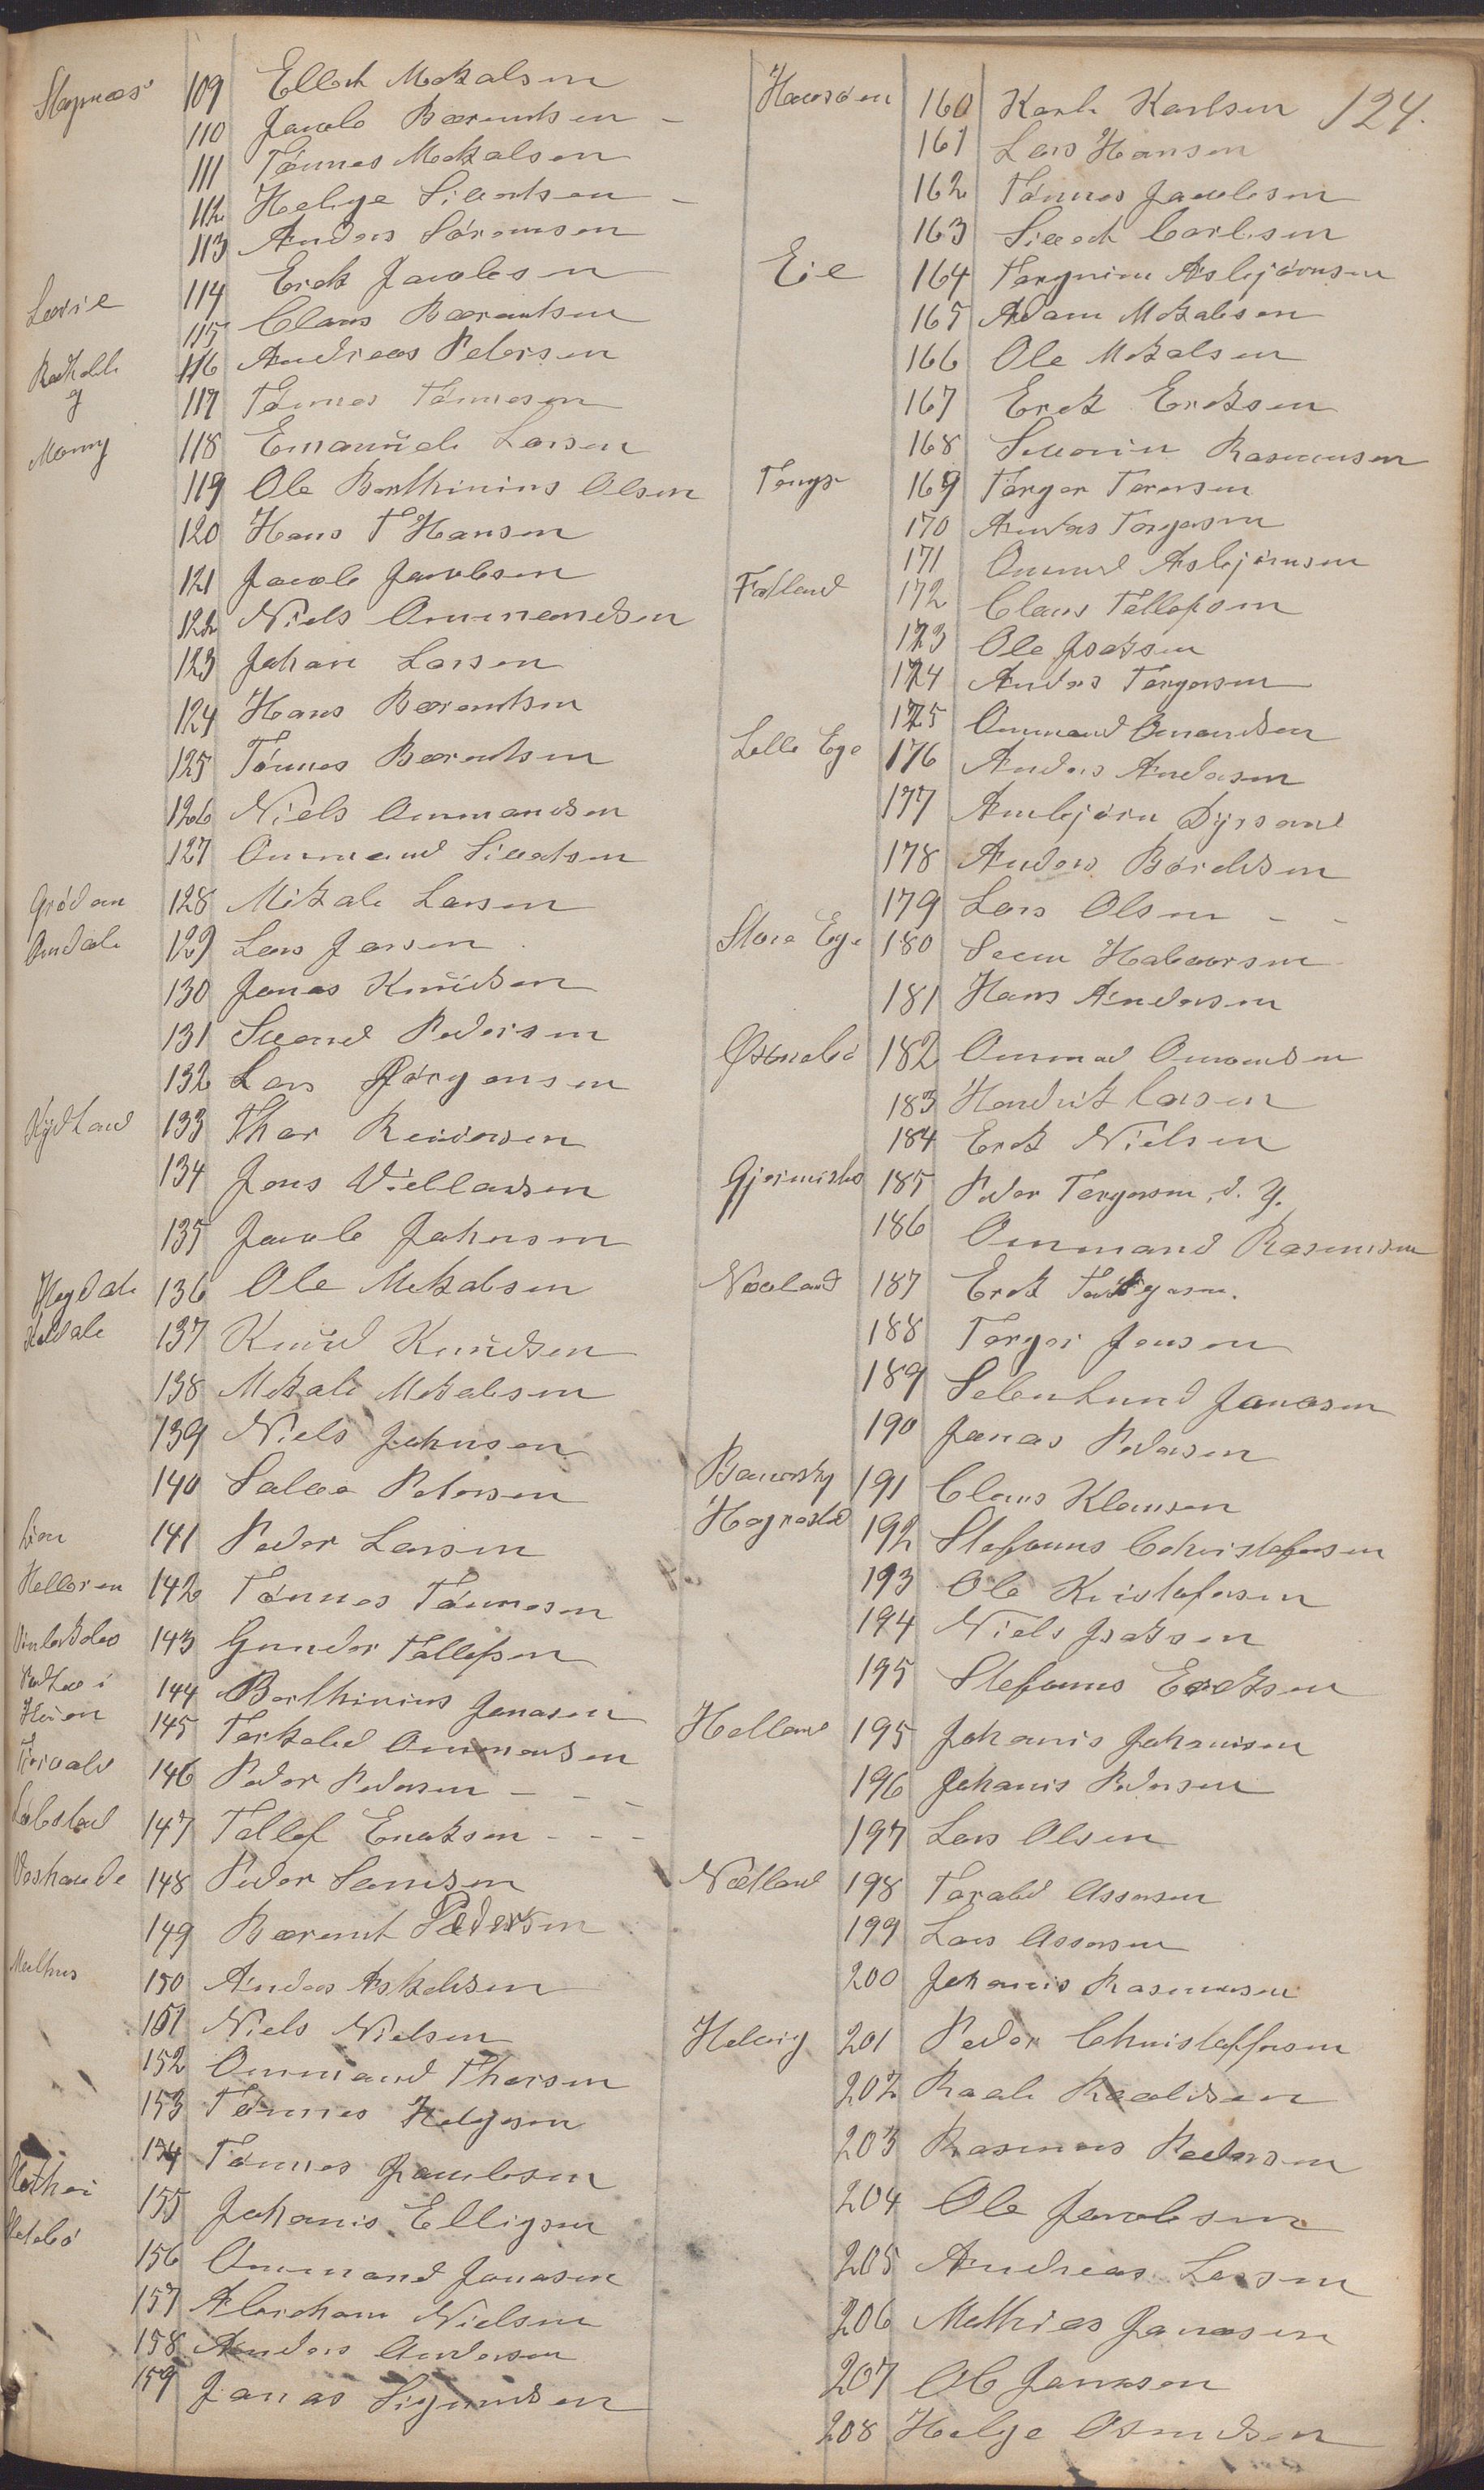 124.
109 Ellert Mekalsen
110 Jacob Bærentsen -
111 Tønnes Mekalsen
112 Helge Sivertsen -
113 Anders Sørensen
114 Erek Jacobsen
115 Claus Bærentsen
116 Andreas Petersen
117 Tønnes Tønnesen
118 Emanuel Larsen
119 Ole Berthinius Olsen
120 Hans T Hansen
121 Jacob Jacobsen
122 Niels Ommandsen
123 Johan Larsen
124 Hans Bærentsen
125 Tønnes Bærentsen
126 Niels Ommandsen
127 Ommand Sivertsen
Grødem 128 Mikal Larsen
Omdal 129 Lars Jensen
130 Jonas Knudsen
131 Svend Pedersen
132 Lars Jørgensen
Kydland 133 Thor Reinertsen
134 Jens Villadsen
135 Jacob Johnsen
Hegdal 136 Ole Mekalsen
137 Knud Knudsen
138 Mekal Mekalsen
139 Niels Johnsen
140 Salve Petersen
Lien 141 Peder Larsen
Helleren 142 Tønnes Tønnesen
143 Gunder Tellefsen
144 Berthinius Jonasen
145 Terkeld Ommendsen
146 Peder Pedersen - - -
147 Tellef Enoksen - - -
148 Peder Samsen
149 Bærent Pedersen
150 Anders Askeldsen
151 Niels Nielsen
152 Ommand Thorsen
153 Tønnes Helgesen
154 Tønnes Jacobsen
155 Johanis Elligsen
156 Ommand Jonasen
157 Abraham Nielsen
158 Anders Andersen
159 Jonas Sigmundsen
160 Karl Karlsen
161 Lars Hansen
162 Tønnes Jacobsen
163 Sivert Carlsen
Eie 164 Torgrim Asbjørnsen
165 Adam Mekalsen
166 Ole Mekalsen
167 Erek Ereksen
168 Severin Rasmusen
Tengs 169 Torger Torersen
170 Anders Torgersen
171 Ommund Asbjørnsen
172 Claus Tellefsen
173 Ole Isaksen
174 Anders Torgersen
175 Ommand Omandsen
Lille Ege 176 Anders Andersen
177 Anbjørn Dyrsand
178 Anders Bordsen
179 Lars Olsen - -
Store Ege 180 Sven Havorsen
181 Hans Andersen
182 Ommand Omandsen
183 Hendrik Larsen
184 Erek Nielsen
185 Peder Torgersen, d. y.
186 Ommand Rasmusen
187 Erek Torgersen.
188 Torger Jensen
189 Jonasen
190 Jonas Pedersen
191 Claus Klausen
Hognestad 192 Stefanus Christofersen
193 Ole Kristofersen
194 Niels Isaksen
195 Stefanus Ereksen
Helland 195 Johanis Johanisen
196 Johanis Pedersen
197 Lars Olsen
Nætland 198 Torald Assersen
199 Lars Assersen
200 Johanis Rasmusen
Helvig 201 Peder Christoffersen
202 Roald Roaldsen
203 Rasmus Pedersen
204 Ole Jacobsen
205 Andreas Larsen
206 Mathias Jonasen
207 Ole Jansen
208 Helge Osmundsen